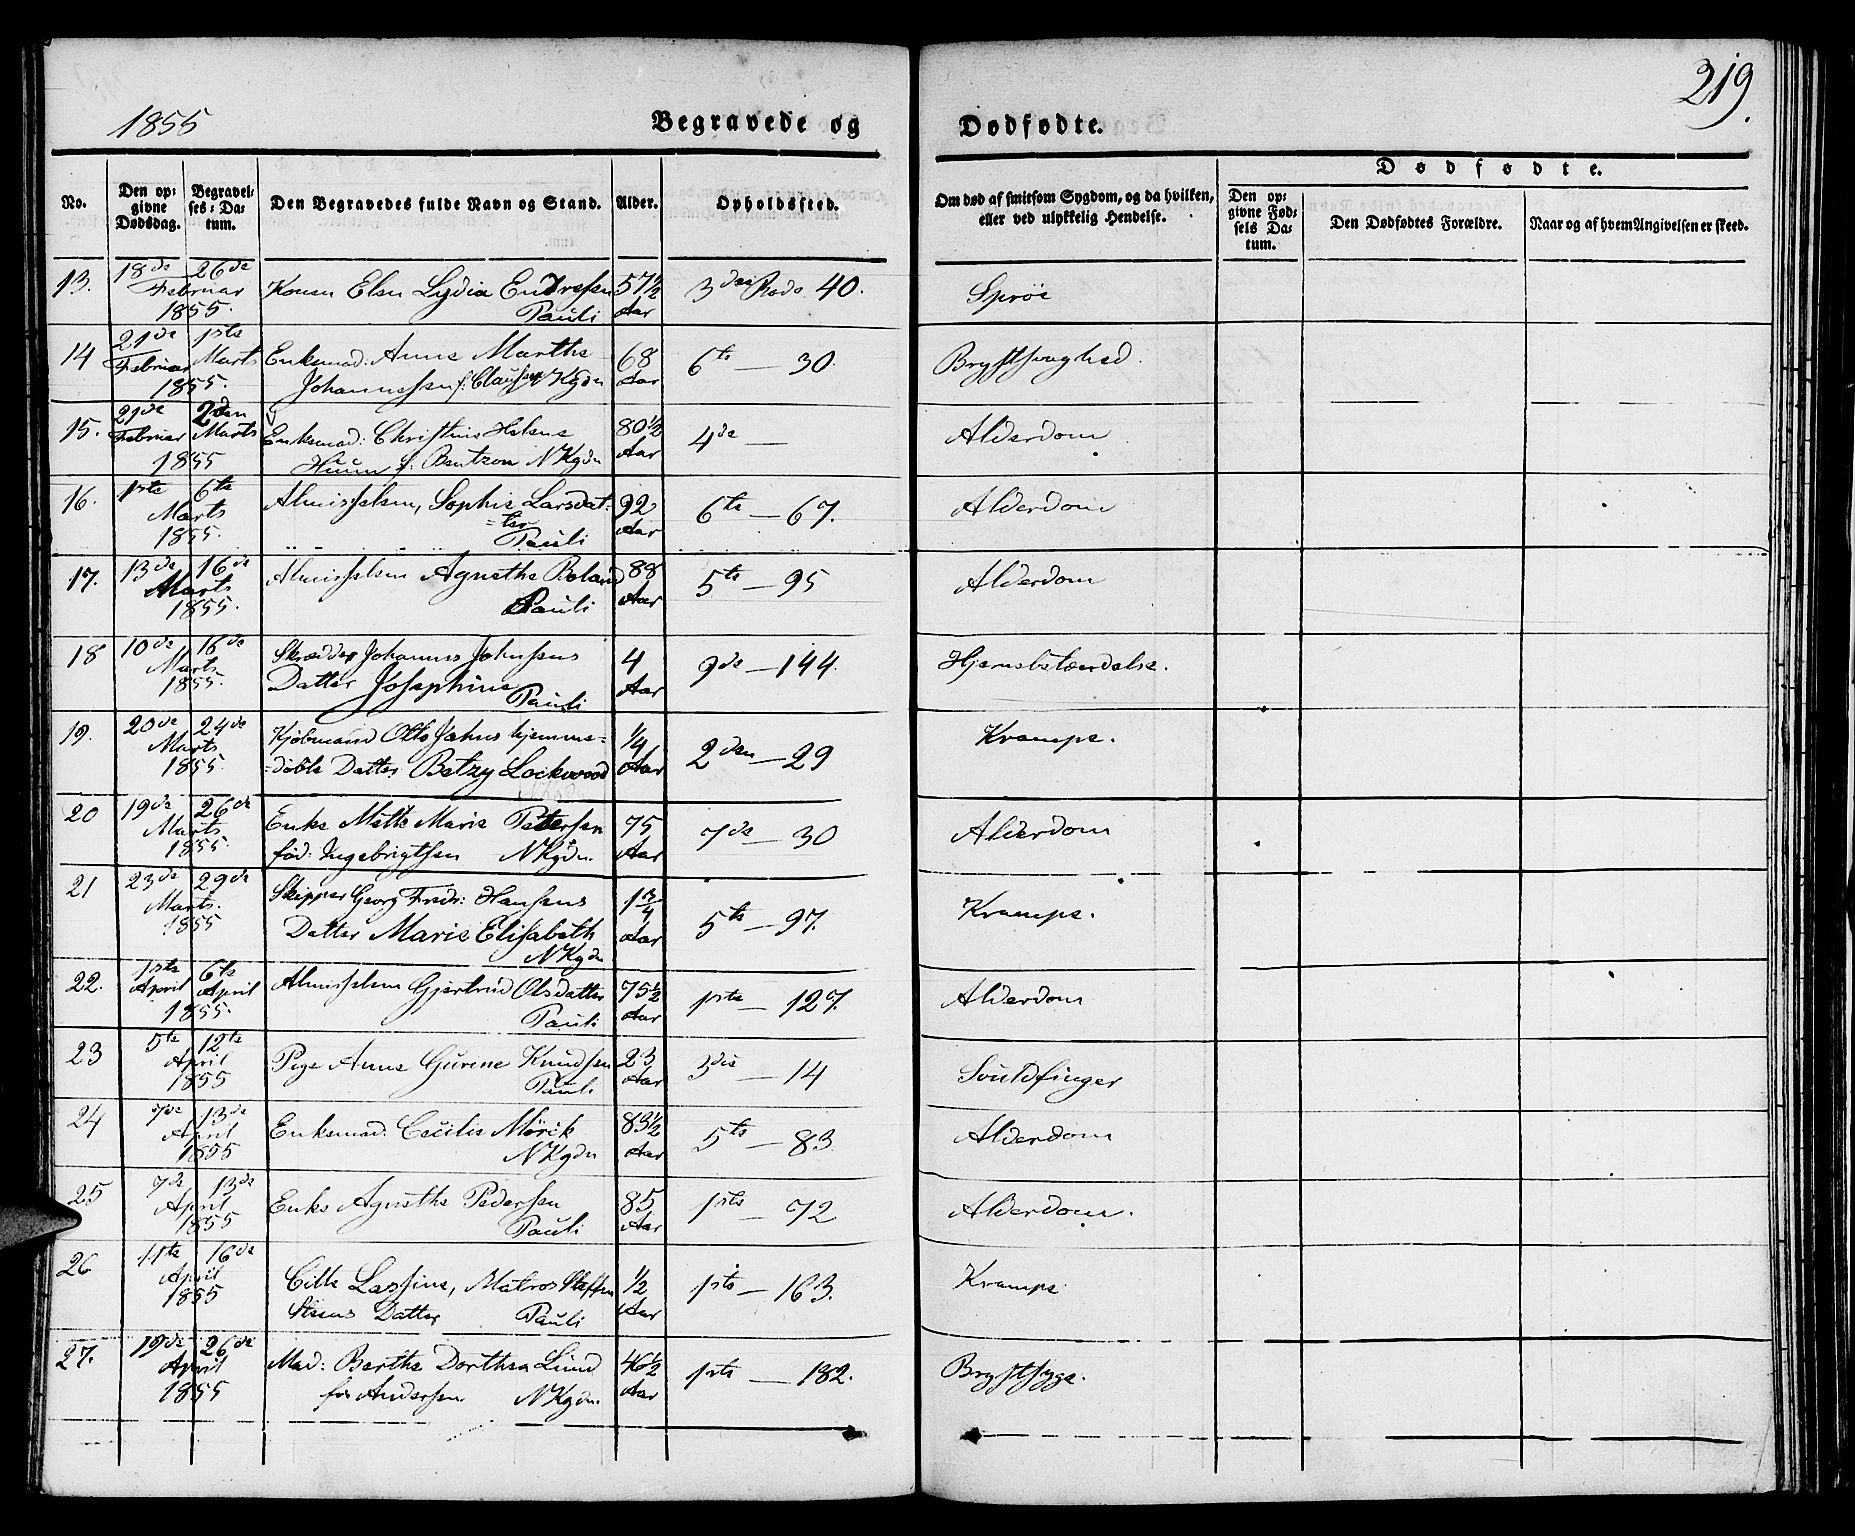 1855
Begravede og
Dødfødte.
219.
No.
Den op-
givne
Dødsdag.
Begravel-
ses-Da-
tum.
Den Begravedes fulde Navn og Stand.
Alder.
Opholdssted.
Om død af smitsom Sygdom, og da hvilken,
eller ved ulykkelig Hendelse.
Dødfødte.
Den op-
givne Fød-
sels Da-
tum.
Den Dødfødtes Forældre.
Naar og af hvem Angivelsen er skeed.
13. 18de 26de Februar 1855. Konen Elen Lydia Endresen 57½ Aar 3die Rode 40. Sprøe
Pauli
14 21de Februar 1ste Marts 1855. Enkemad: Anne Marthe 68 Aar 6te — 30. Brystsvaghed.
Johannessen f. Claussen NKgdn
15. 21de Februar 2den Marts 1855 Enkemad: Christine Helene 80½ Aar 4de — Alderdom
f. Bentzon NKgdn
16. 1ste 6te Marts 1855. Almisselem, Sophie Larsdat- 92 Aar 6te — 67. Alderdom
=ter
Pauli
17. 13de 16de Marts 1855. Almisselem Agnethe Boland 88 Aar 5te — 95 Alderdom
Pauli
18 10de 16de Marts 1855. Skrædder Johannes Johnsens 4 Aar 9de — 144. Hjernebetændelse.
Datter Josephine Pauli
19. 20de 24de Marts 1855. Kjøbmand Otto Jahns hjemme= ¼ Aar 2den — 29 Krampe.
=døbte Datter Betzy Lockwood
20 19de 26de Marts 1855. Enke Mette Marie Petersen 75 Aar 7de — 30 Alderdom
fød: Ingebrigtsen NKgdn.
21 23de 29de Marts. 1855 Skipper Georg Fredr: Hansens 1¾ Aar 5te — 97. Krampe.
Datter Marie Elisabeth
NKgdn
22. 1ste April 6te April 1855. Almisselem Gjertrud Olsdatter 75½ Aar 1ste — 127. Alderdom
Pauli
23 5te 12te April 1855 Pige Anne Gurine Knudsen 23 Aar 3die — 14 Svuldfinger
Pauli
24 7de 13de April 1855 Enkemad: Cecilie Mörik 83½ Aar 5te — 83 Alderdom
NKgdn
25 7de 13de April 1855 Enke Agnethe Pedersen 85 Aar 1ste — 72 Alderdom.
Pauli
26 11te 16de April 1855 Lassine, Matros Steffen ½ Aar 1ste — 163. Krampe
Steens Datter Pauli
27. 19de 26de April 1855 Mad: Berthe Dorthea Lund 46½ Aar 1ste — 182. Brystsyge.
fød Andersen NKgdn.